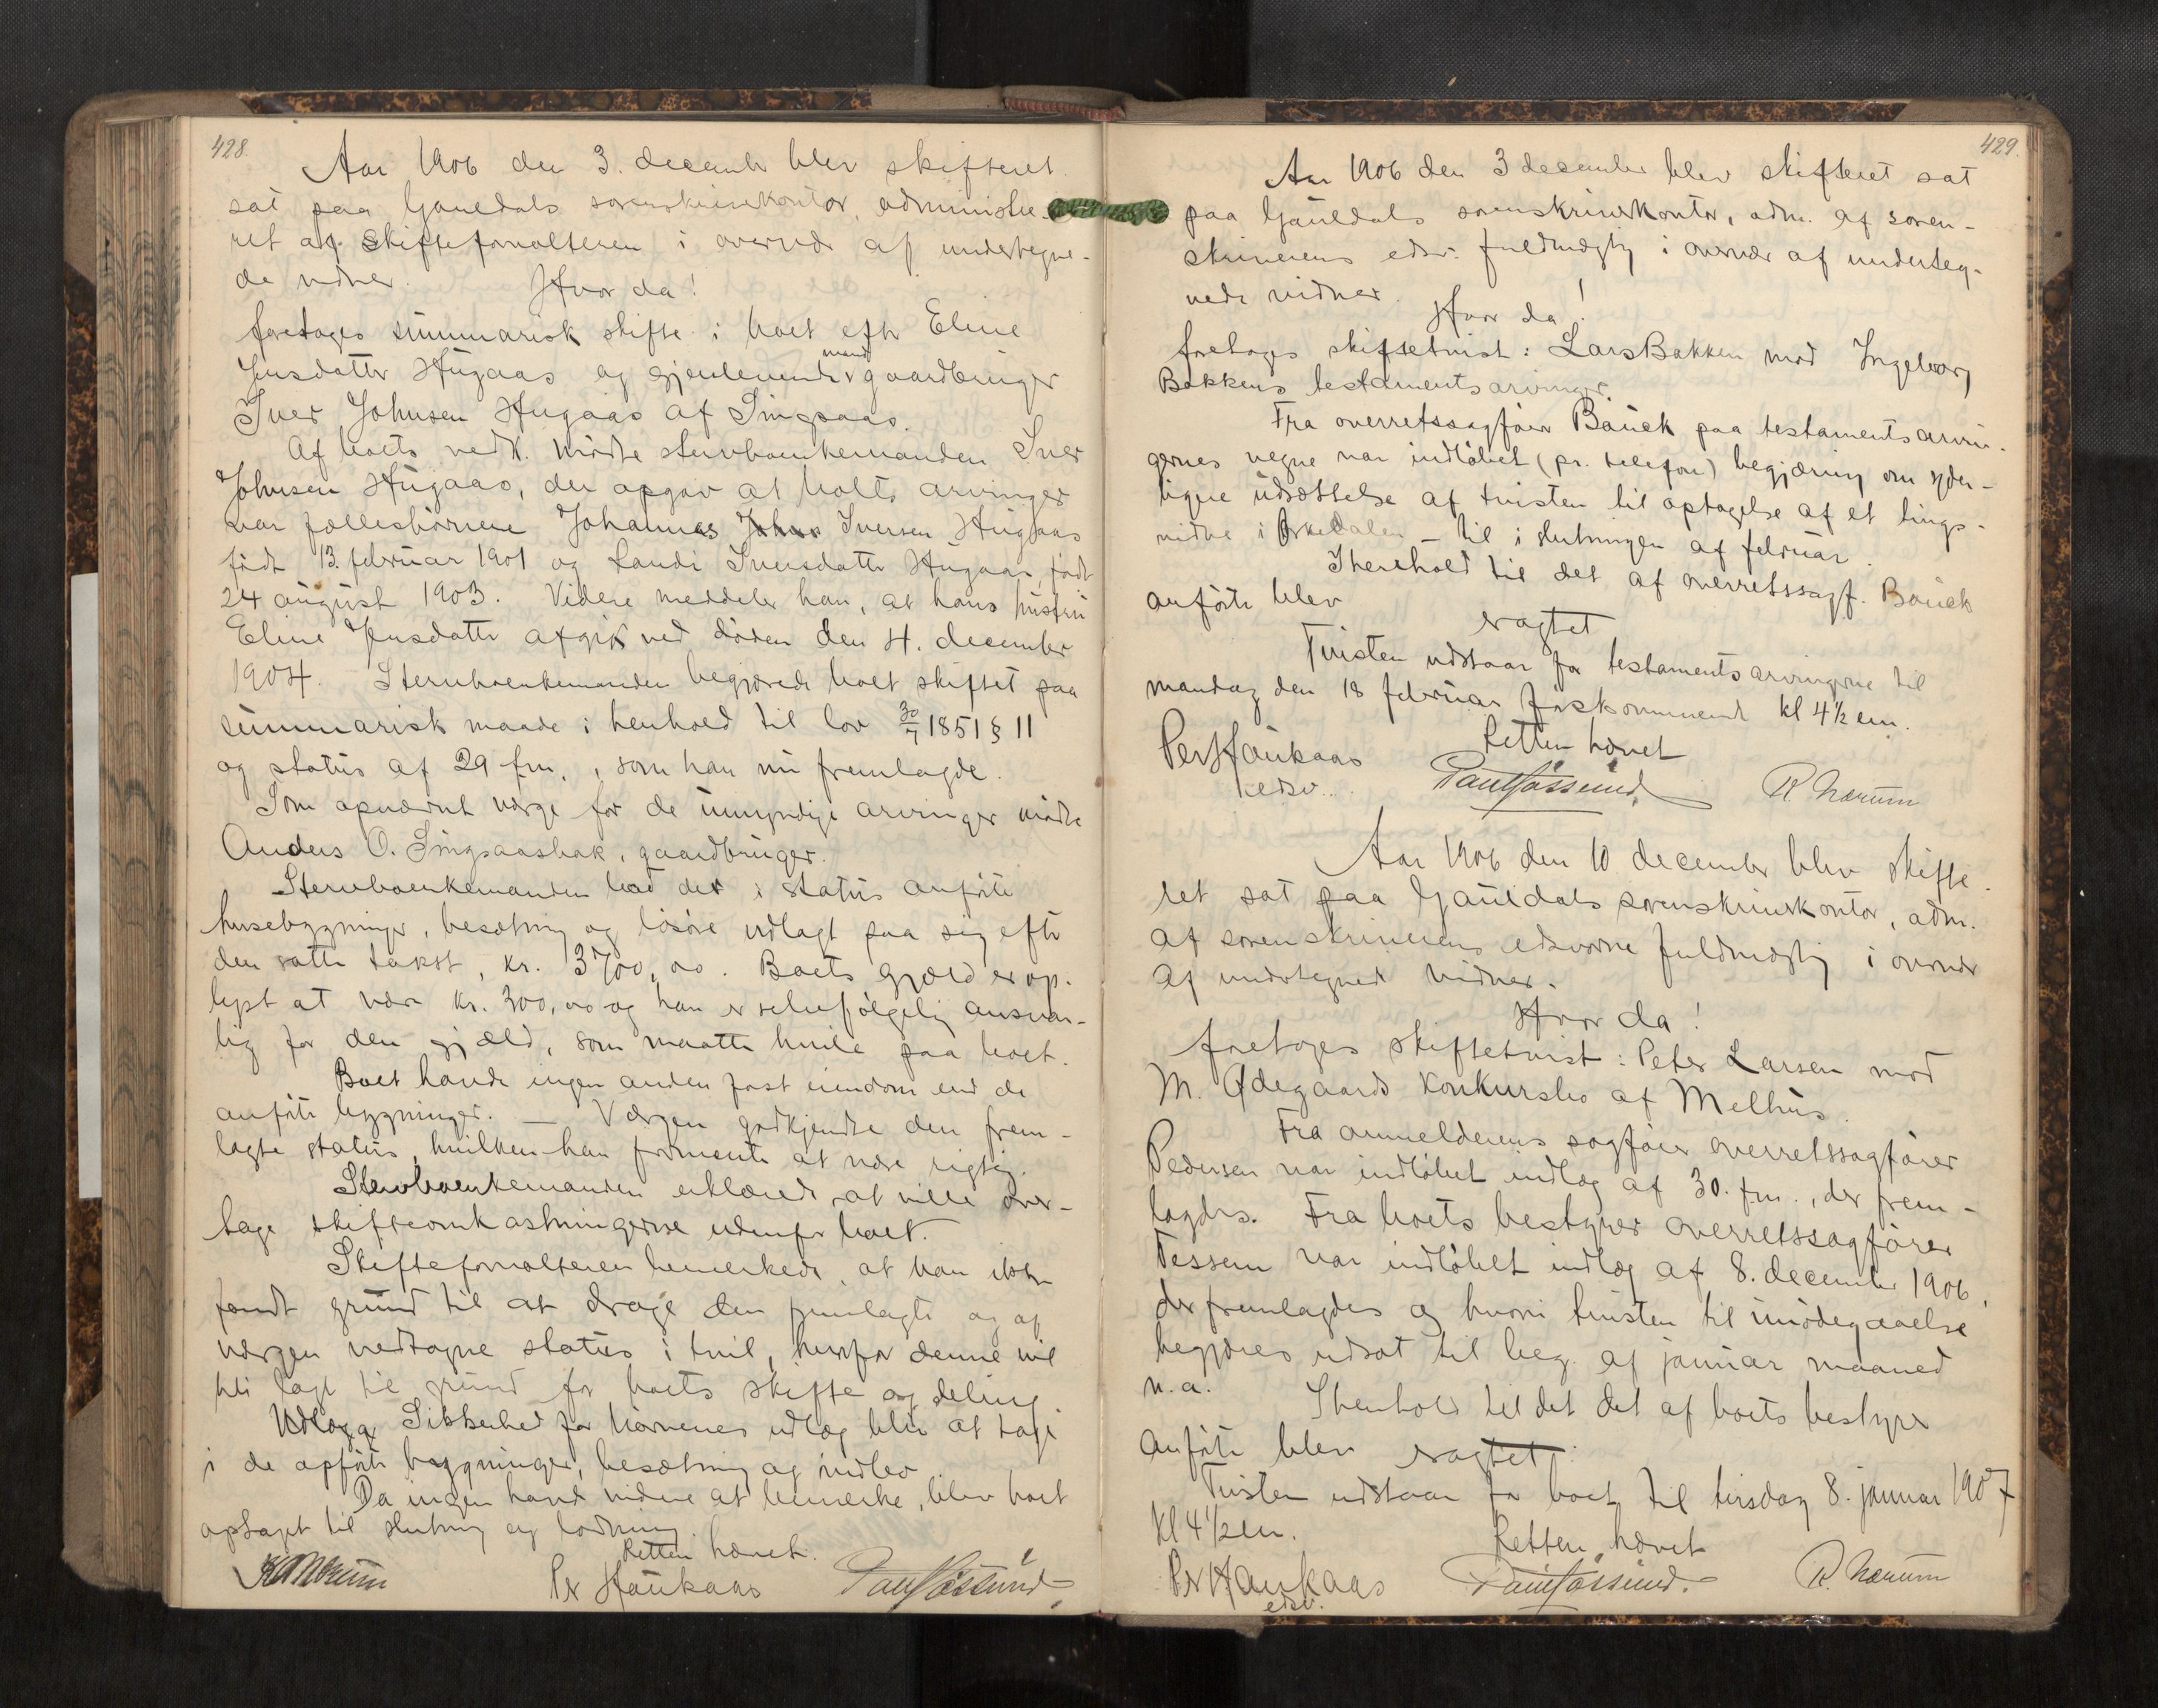 428.
Aar 1906 den 3. decembr blev skifteret
sat paa Gauldals sorenskriverkontor, administre-
ret af skifteforvalteren i overvær af undertegne-
de vidner. Hvor da!
foretoges summarisk skifte i boet efter Eline
Jensdatter Hugaas og gjenlevende mand gaardbruger
Iver Johnsen Hugaas af Singsaas.
Af boets vedk. mødte stervboenkemanden Iver
Johnsen Hugaas, der opgav at boets arvinger
var fællesbørnene Johannes Iversen Hugaas
født 13. februar 1901 og Randi Iversdatter Hugaas, født
24 august 1903. Videre meddeler han, at hans hustru
Eline Jensdatter afgik ved døden den 4. december
1904. Stervboenkemanden begjærede boet skiftet paa
summarisk maade i henhold til lov 30/7 1851 § 11
og status af 29 f.m., som han nu fremlagde.
Som opnævnt værge for de umyndige arvinger mødte
Anders O. Singsaasbak, gaardbruger.
Stervboenkemanden bad de i status anførte
husebygninger, besætning og løsøre udlagt paa sig efter
den satte takst, kr. 3700,00. Boets gjæld er op-
lyst at være kr. 300,00 og han er selvfølgelig ansvar-
lig for den gjæld, som maatte hvile paa boet.
Boet havde ingen anden fast eiendom end de
anførte bygninger. — Værgen godkjendte den frem-
lagte status, hvilken han formente at være rigtig.
Stervboenkemanden erklærede at ville over-
tage skifteomkostningerne udenfor boet.
Skifteforvalteren bemerkede, at han ikke
fandt grund til at drage den fremlagte og af
værgen vedtagne status i tvil, hvorfor denne vil
bli lagt til grund for boets skifte og deling.
Sikkerhed for børnenes udlæg blir at tage
i de opførte bygninger, besætning og indbo
Da ingen havde videre at bemerke, blev boet
optaget til slutning og lodning.
Retten hævet.
Per Haukaas Paul Fossund
429.
Aar 1906 den 3 december blev skifteret sat
paa Gauldals sorenskriverkontor, adm. af soren-
skriverens edsv. fuldmægtig i overvær af underteg-
nede vidner.
Hvor da!
foretoges skiftetvist: Lars Bakken mod Ingeborg
Bakkens testamentsarvinger.
Fra overretssagfører Bauck paa testamentsarvin-
gernes vegne var indløbet (pr. telefon) begjæring om yder-
ligere udsættelse af tvisten til optagelse af et tings-
vidne i Orkedalen — til i slutningen af februar.
I henhold til det af overretssagf. Bauck
anførte blev
eragtet
Tvisten udstaar for testamentsarvingerne til
mandag den 18 februar førskommende kl 4½ em.
Retten hævet
Per Haukaas
edsv. Paul Fossund R. Nærum
Aar 1906 den 10 december blev skifte-
ret sat paa Gauldals sorenskriverkontor, adm.
af sorenskriverens edsvorne fuldmægtig i overvær
af undertegnede vidner.
Hvor da!
foretoges skiftetvist: Peter Larsen mod
M. Ødegaards konkursbo af Melhus.
Fra anmelderens sagfører overretssagfører
Pedersen var indløbet indlæg af 30. f.m., der frem-
lagdes. Fra boets bestyrer overretssagfører
Tessem var indløbet indlæg af 8. december 1906,
der fremlagdes og hvori tvisten til imødegaaelse
begjæres udsat til beg. af januar maaned
n.a.
I henhold til det det af boets bestyrer
anførte blev eragtet:
Tvisten udstaar for boet til tirsdag 8. januar 1907
kl 4½ em.
Retten hævet
Per Haukaas
edsv. Paul Fossund. R. Nærum